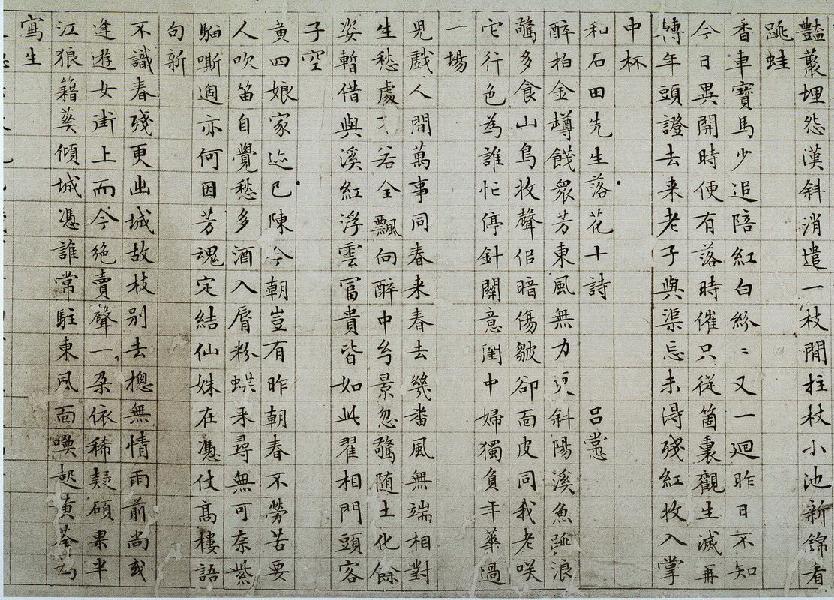 豔叢埋怨漢斜消遣一枝閒拄杖小池新錦看
跳蛙
香車寶馬少追陪紅白紛〻又一迴昨日不知
今日異開時便有落時催只從箇裏觀生滅再
轉年頭證去來老子與渠忘未得殘紅收入掌
中杯
和石田先生落花十詩 呂㦂
醉拍金罇餞衆芳東風無力更斜陽溪魚跳浪
驚多食山鳥收聲似暗傷皺卻面皮同我老咲
它行色為誰忙停針閒意閨中婦獨負年華過
一場
兒戲人間萬事同春來春去幾番風無端相對
生愁處 若全飄向醉中兮景忽驚隨土化餘
姿暫借與溪紅浮雲富貴皆如此翟相門頭客
子空
黃四娘家迹已陳今朝豈有昨朝春不勞苦要
人吹笛自覺愁多酒入脣粉蝶來尋無可奈紫
騮嘶過亦何因芳魂定結仙姝在憑仗高樓語
句新
不識春殘更出城故枝別去總無情雨前尚或
逢遊女街上而今絕賣聲一朶依稀疑碩果半
江狼籍葬傾城憑誰常駐東風面喚起黃荃為
寫生